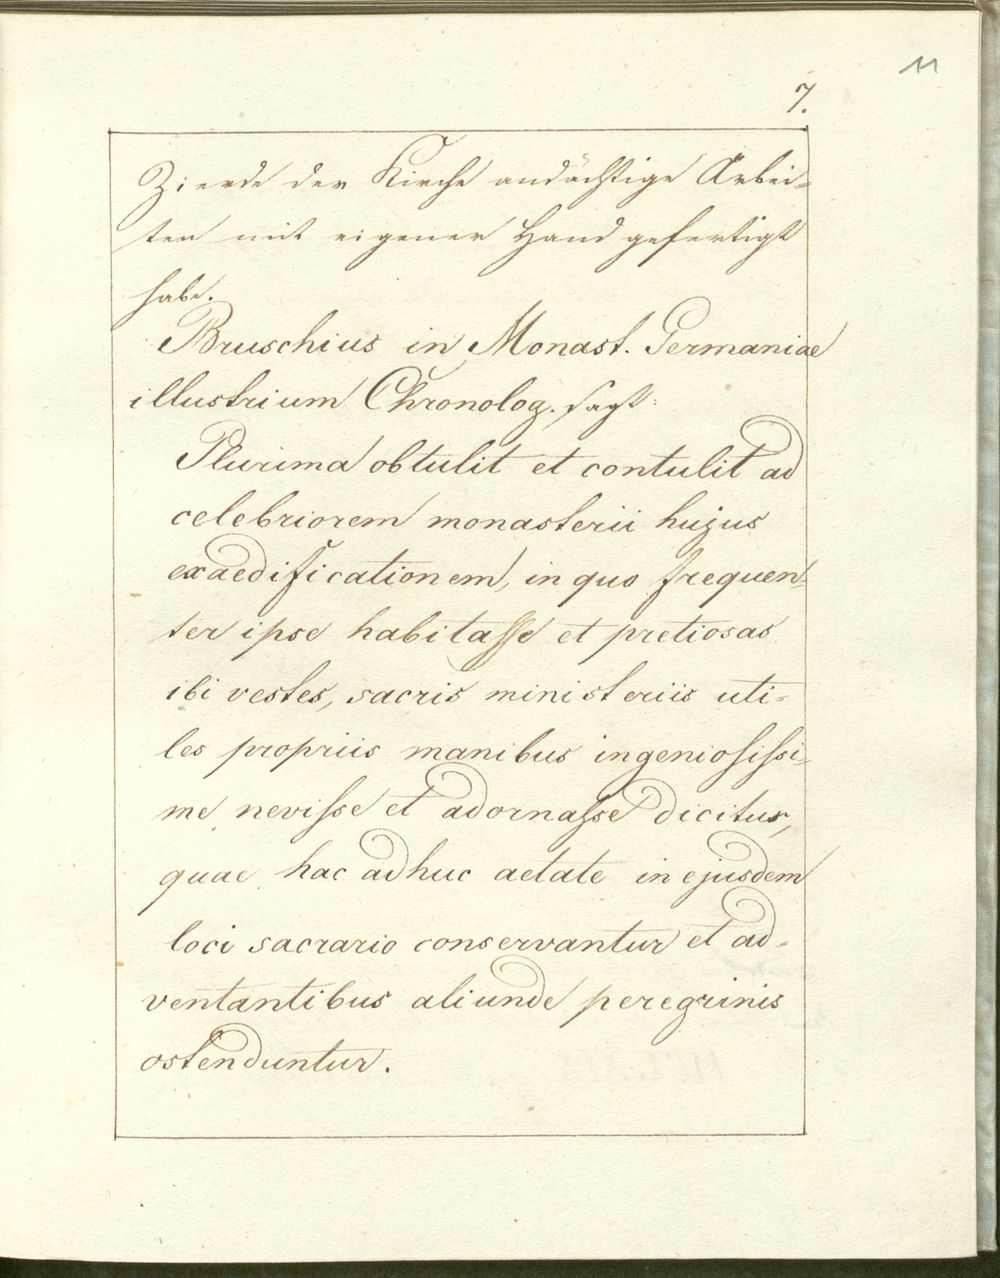 11
7.
Zierde der Kirche andächtige Arbei-
ten mit eigener Hand gefertigt
habe.
Bruschius in Monast. Germaniae
illustrium Chronolog. sagt:
Plurima obtulit et contulit ad
celebriorem monasterii hujus
exaedificationem, in quo frequen-
ter ipse habitasse et pretiosas
ibi vestes, sacris ministeriis uti-
les propriis manibus ingeniosissi-
me nevisse et adornasse dicitur,
quae hac adhuc aetate in ejusdem
loci sacrario conservantur et ad-
ventantibus aliunde peregrinis
ostenduntur.